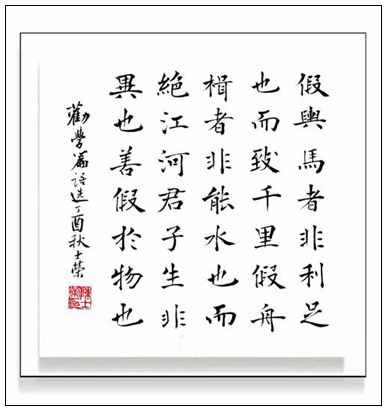 假輿馬者非利足
也而致千里假舟
楫者非能水也而
絕江河君子生非
異也善假於物也
勸學篇語选丁酉秋士榮